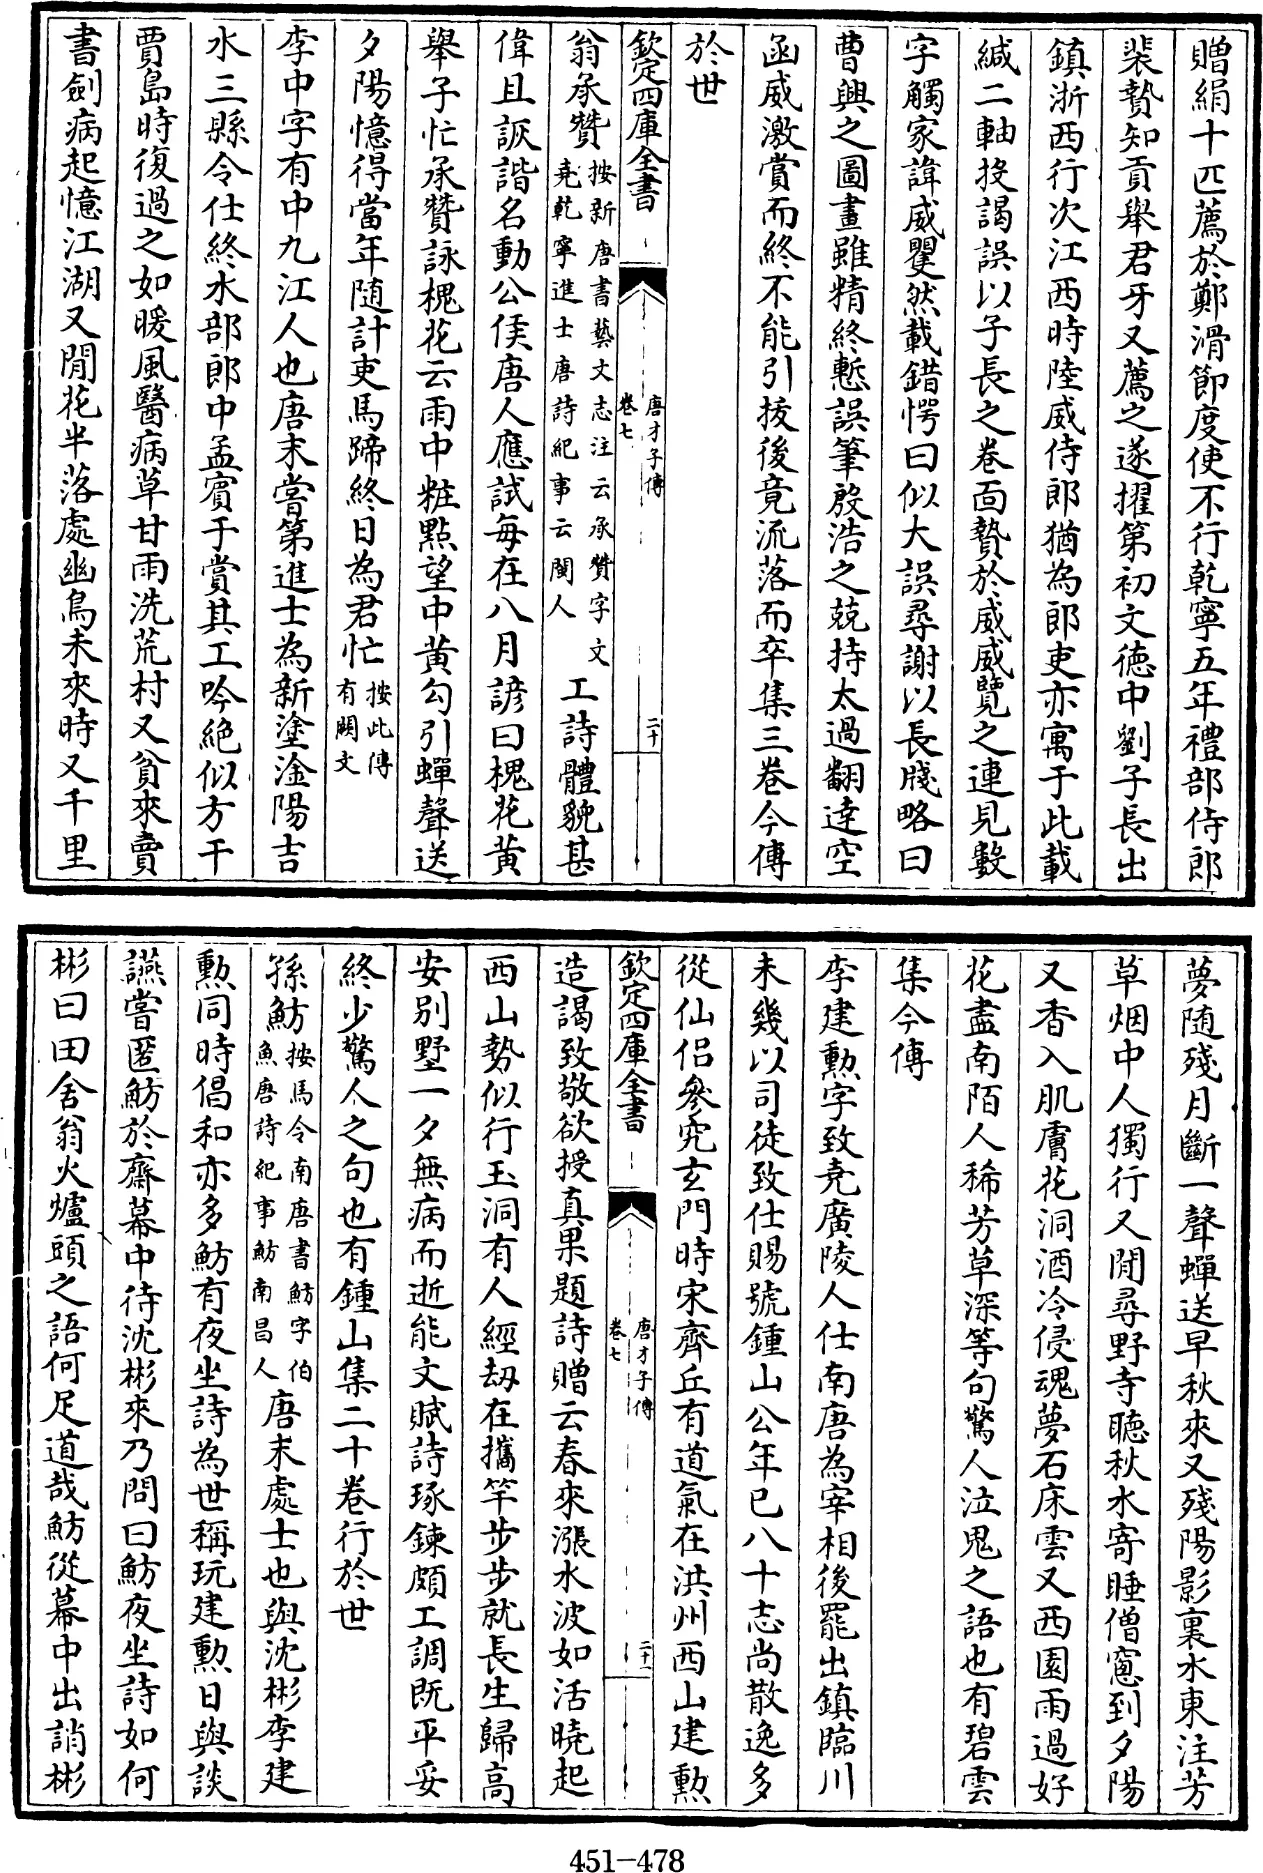 贈絹十匹薦於鄭滑節度使不行乾寧五年禮部侍郎
裴贄知貢舉君牙又薦之遂擢第初文徳中劉子長出
鎮浙西行次江西時陸威侍郎猶為郎吏亦寓于此載
緘二軸投謁誤以子長之卷面贄於威威覽之連見數
字觸家諱威矍然載錯愕曰似大誤尋謝以長牋略曰
曹興之圖畫雖精終慙誤筆殷浩之兢持太過翻達空
函威激賞而終不能引拔後竟流落而卒集三卷今傳
於世
欽定四庫全書
唐才子傳
卷七
二十
翁承贊按新唐書藝文志注云承贊字文堯乾寧進士唐詩紀事云閩人工詩體貌甚
偉且詼諧名動公侯唐人應試每在八月諺曰槐花黄
舉子忙承贊詠槐花云雨中粧點望中黄勾引蟬聲送
夕陽憶得當年随計吏馬蹄終日為君忙按此傳有闕文
李中字有中九江人也唐末嘗第進士為新塗淦陽吉
水三縣令仕終水部郎中孟賓于賞其工吟絶似方干
賈島時復過之如暖風醫病草甘雨洗荒村又貧來賣
書劍病起憶江湖又閒花半落處幽鳥未來時又千里
夢随殘月斷一聲蟬送早秋來又殘陽影裏水東注芳
草烟中人獨行又閒尋野寺聽秋水寄睡僧窻到夕陽
又香入肌膚花洞酒冷侵魂夢石床雲又西園雨過好
花盡南陌人稀芳草深等句驚人泣鬼之語也有碧雲
集今傳
李建勲字致堯廣陵人仕南唐為宰相後罷出鎮臨川
未幾以司徒致仕賜號鍾山公年已八十志尚散逸多
從仙侣參究玄門時宋齊丘有道氣在洪州西山建勲
欽定四庫全書
唐才子傳
卷七
二十一
造謁致敬欲授真果題詩贈云春來漲水波如活曉起
西山勢似行玉洞有人經劫在攜竿步步就長生歸高
安别墅一夕無病而逝能文賦詩琢鍊頗工調既平妥
終少驚人之句也有鍾山集二十卷行於世
孫魴按馬令南唐書魴字伯魚唐詩紀事魴南昌人唐末處士也與沈彬李建
勲同時倡和亦多魴有夜坐詩為世稱玩建勲日與談
讌嘗匿魴於齋幕中待沈彬來乃問曰魴夜坐詩如何
彬曰田舍翁火爐頭之語何足道哉魴從幕中出誚彬
451-478